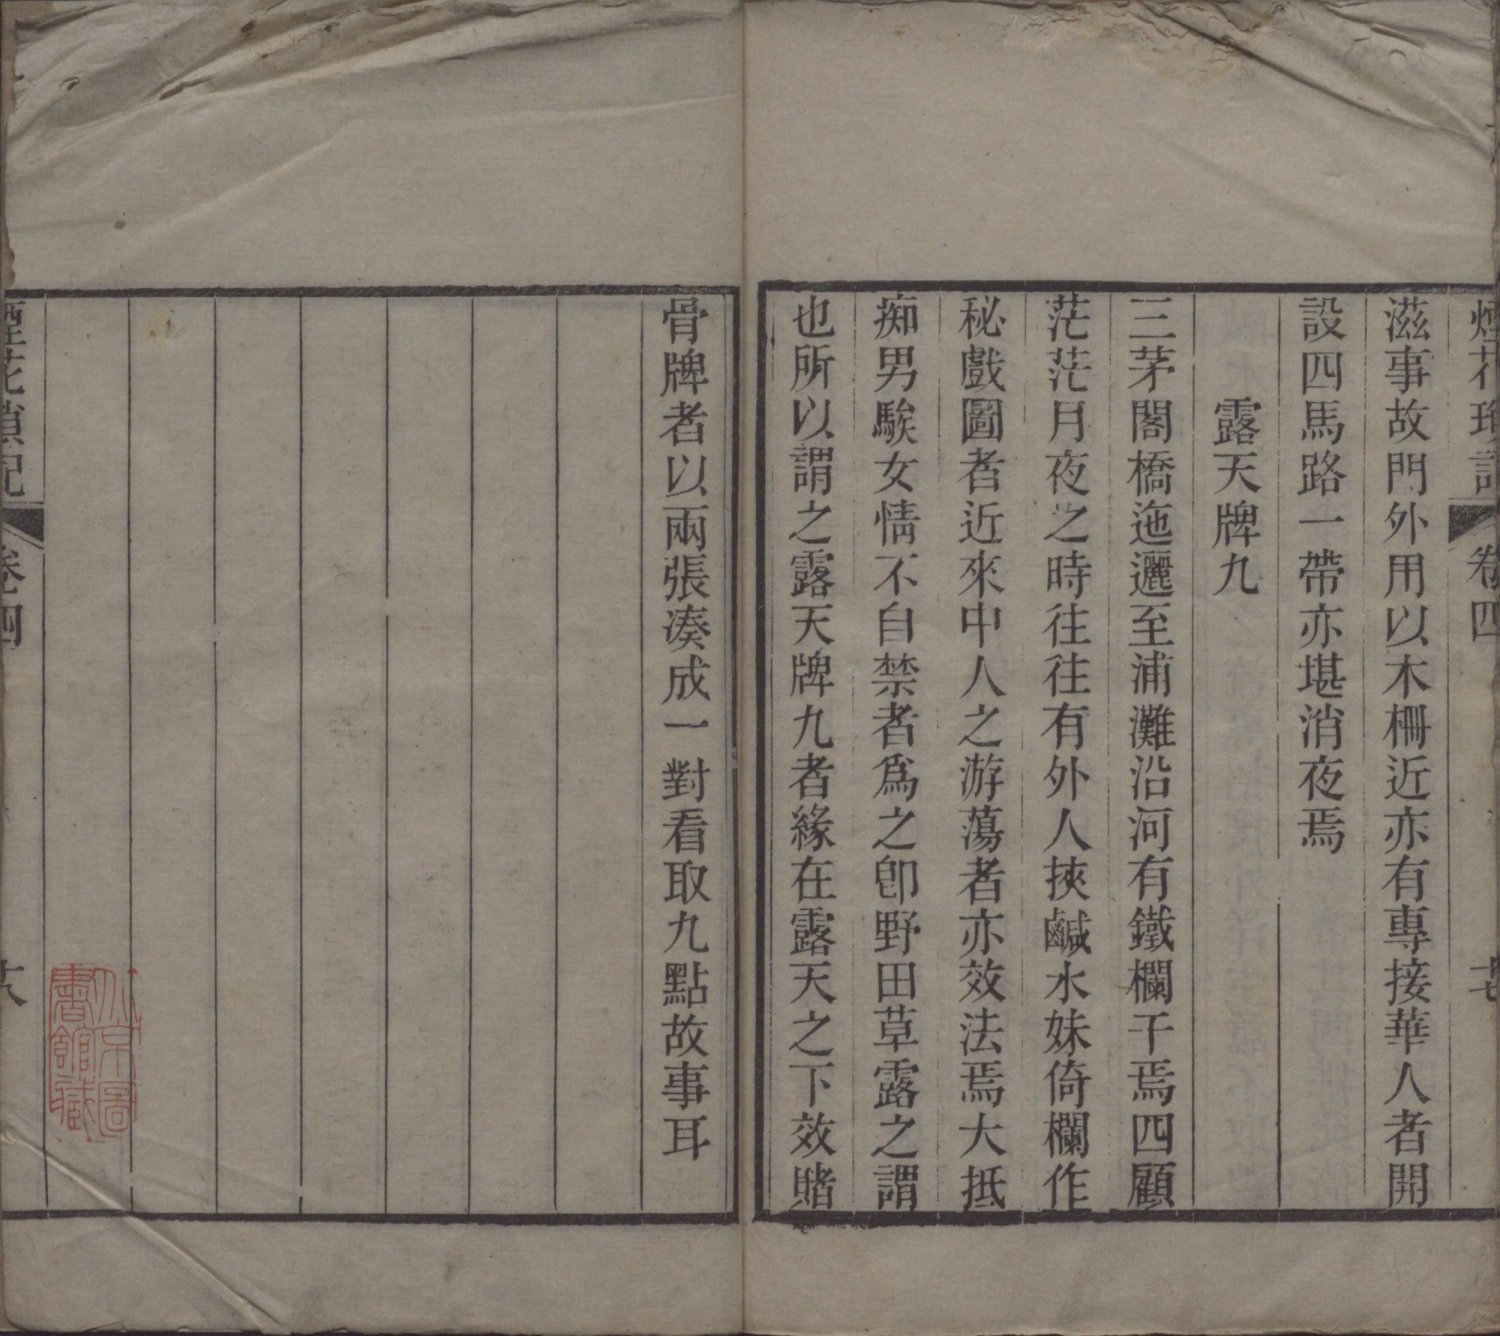 煙花瑣記 卷四 十七
滋事故門外用以木柵近亦有專接華人者開
設四馬路一帶亦堪消夜焉
露天牌九
三茅閣橋迤邐至浦灘沿河有鐵欄干焉四顧
茫茫月夜之時往往有外人挾鹹水妹倚欄作
秘戲圖者近來中人之游蕩者亦效法焉大抵
痴男騃女情不自禁者爲之卽野田草露之謂
也所以謂之露天牌九者緣在露天之下效賭
骨牌者以兩張湊成一對看取九點故事耳
煙花瑣記 卷四 十八